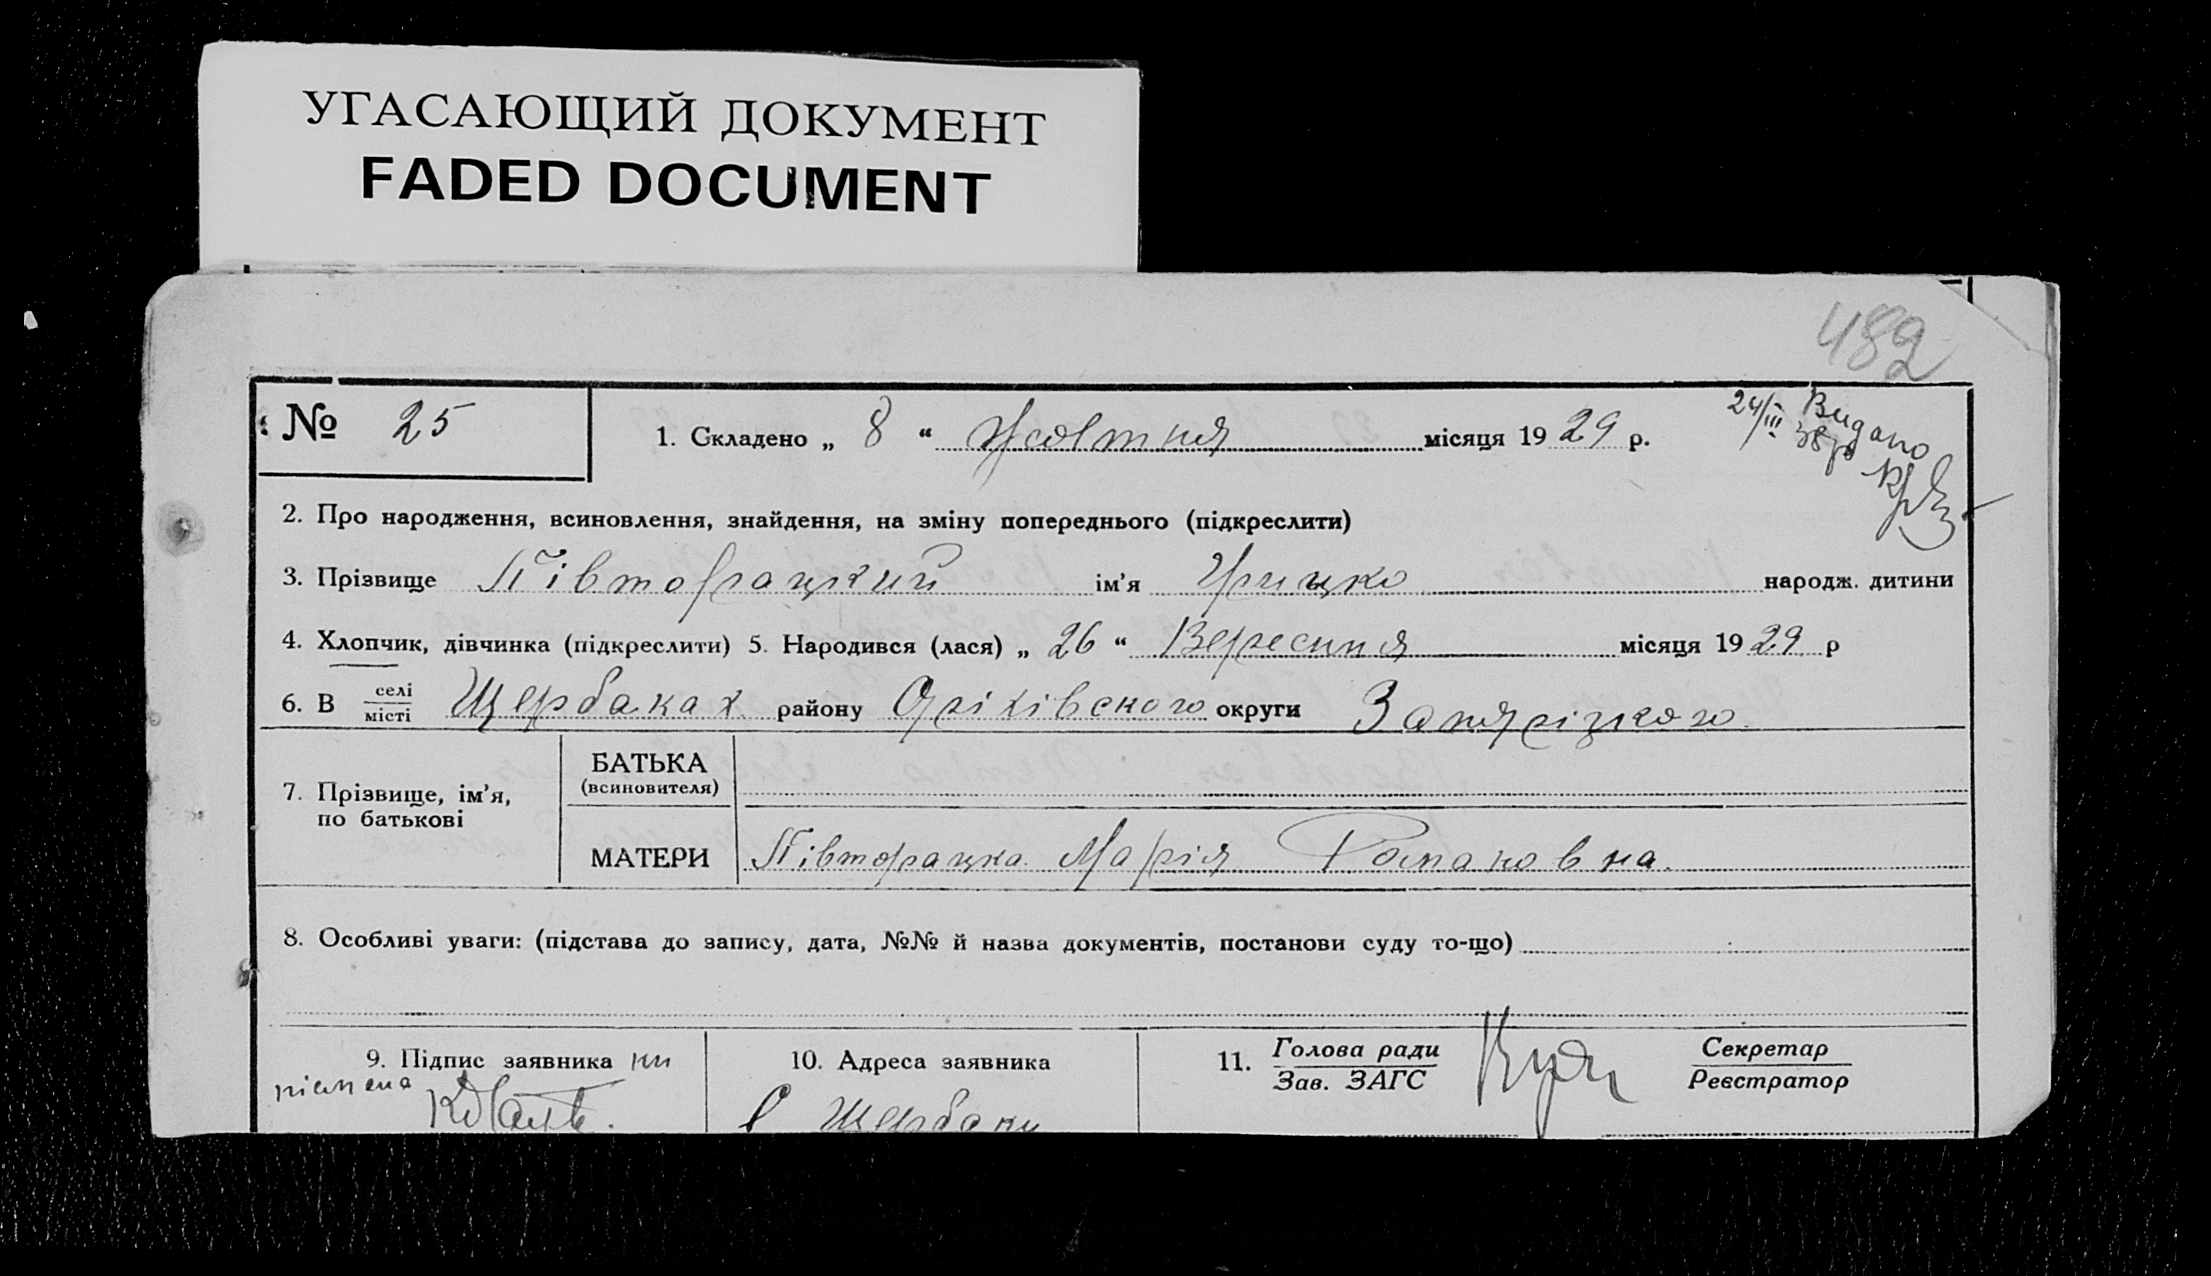 УГАСАЮЩИЙ ДОКУМЕНТ
FADED DOCUMENT
482
№ 25
1. Складено „ 8 “ Жовтня місяця 1929 р.
24/III 38 р Видано
2. Про народження, всиновлення, знайдення, на зміну попереднього (підкреслити)
3. Прізвище Півторацкий ім’я Грицко народж. дитини
4. Хлопчик, дівчинка (підкреслити) 5. Народився (лася) „ 26 “ Вересння місяця 1929 р
6. В селі місті Щербаках району Оріхівского округи Запоріzкого
7. Прізвище, ім’я, по батькові
БАТЬКА
(всиновителя)
МАТЕРИ Півторацка Марія Романовна.
8. Особливі уваги: (підстава до запису, дата, №№ й назва документів, постанови суду то-що)
9. Підпис заявника
10. Адреса заявника
с Щербаки
11. Голова ради
Зав. ЗАГС
Секретар
Реєстратор